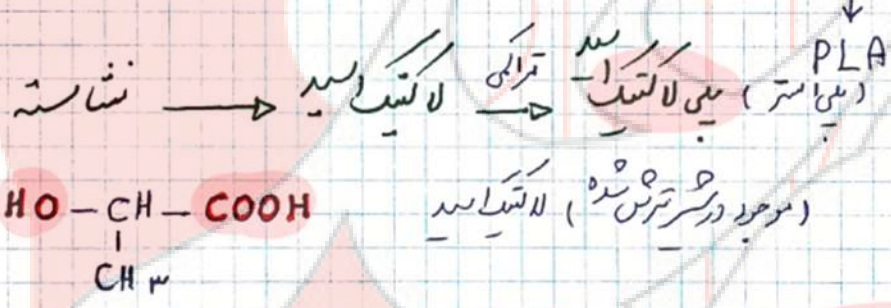 ↓
PLA
نشاسته → لاکتیک اسید →تراکمی پلی لاکتیک اسید (پلی استر)
HO – CH – COOH
(موجود در شیر ترش شده) لاکتیک اسید
CH۳